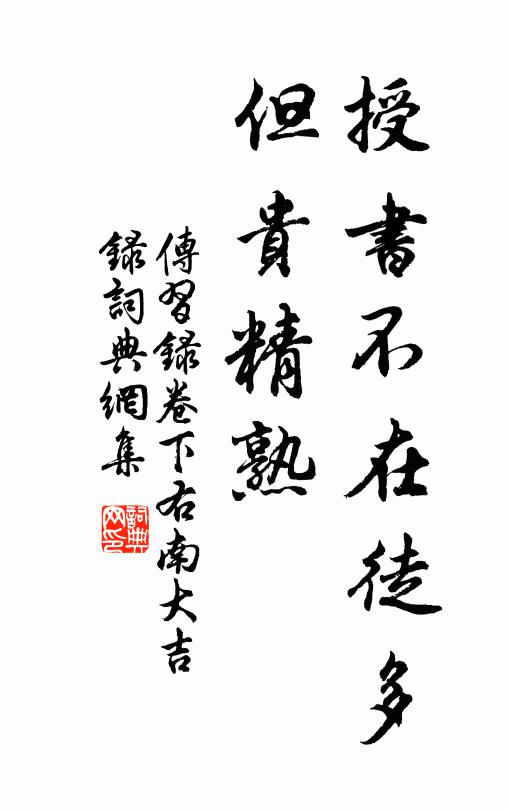 授書不在徒多
但貴精熟
傳習錄卷下右南大吉
錄詞典網集
詞典網印